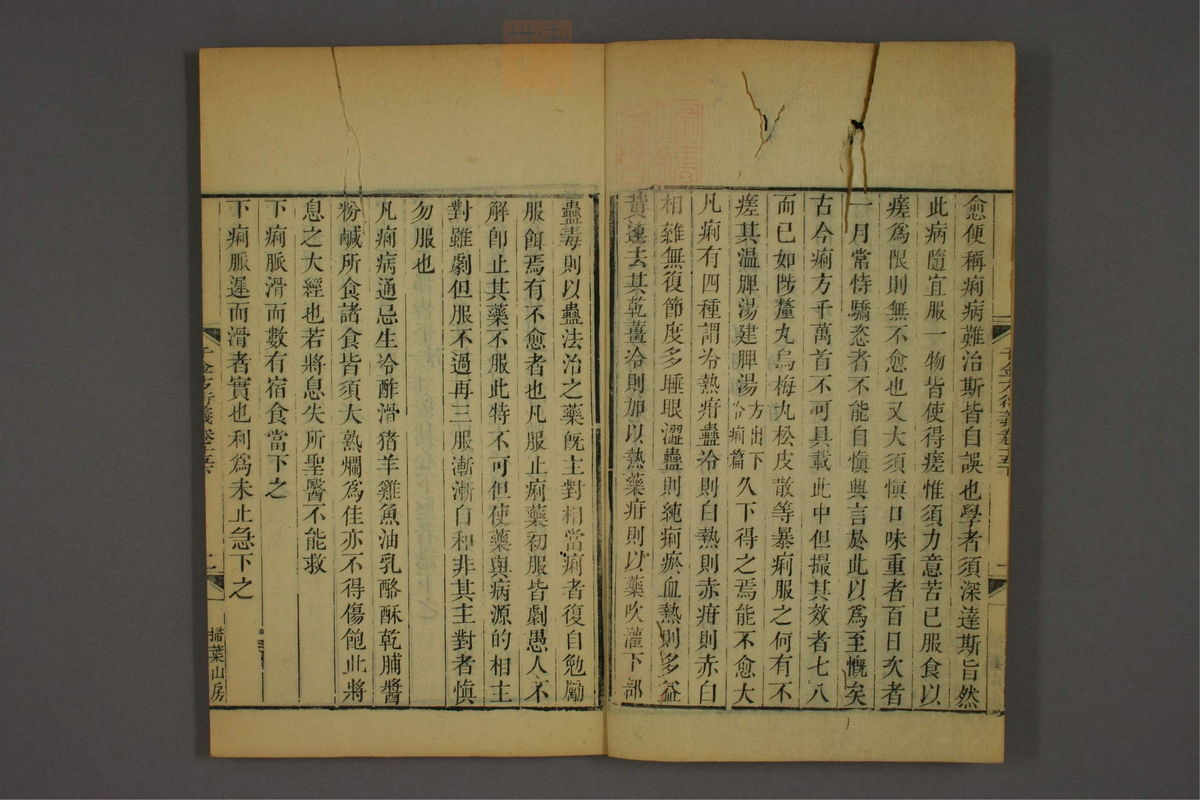 愈便稱痢病難治斯皆自誤也學者須深達斯旨然
此病隨宜服一物皆使得瘥惟須力意苦已服食以
瘥爲限則無不愈也又大須愼口味重者百日次者
一月常恃驕恣者不能自愼興言於此以爲至慨矣
古今痢方千萬首不可具載此中但撮其效者七八
而已如陟釐丸烏梅丸松皮散等暴痢服之何有不
瘥其温脾湯建脾湯方出下冷痢篇久下得之焉能不愈大
凡痢有四種謂冷熱疳蠱冷則白熱則赤疳則赤白
相雜無復節度多睡眼澀蠱則純痢瘀血熱則多益
黄連去其乾薑冷則加以熱藥疳則以藥吹灌下部
蠱毒則以蠱法治之藥旣主對相當痢者復自勉勵
服餌焉有不愈者也凡服止痢藥初服皆劇愚人不
解卽止其藥不服此特不可但使藥與病源的相主
對雖劇但服不過再三服漸漸自和非其主對者愼
勿服也
凡痢病通忌生冷酢滑猪羊雞魚油乳酪酥乾脯醬
粉鹹所食諸食皆須大熟爛爲佳亦不得傷飽此將
息之大經也若將息失所聖醫不能救
下痢脈滑而數有宿食當下之
下痢脈遲而滑者實也利爲未止急下之
掃葉山房